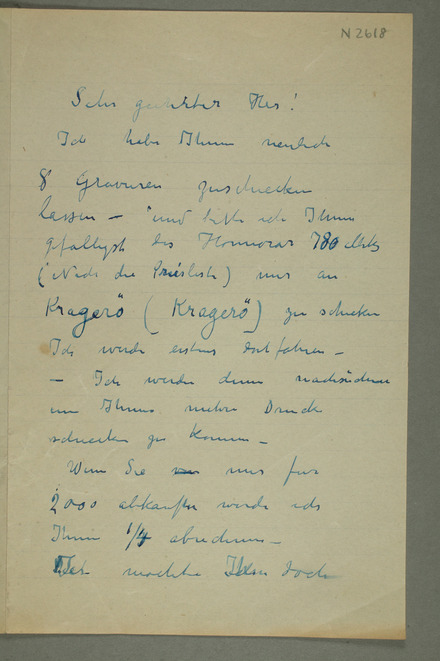 N 2618
Sehr geehrter Herr!
Ich habe Ihnen neulich
8 Gravuren zuschicken
lassen – und bitte ich Ihnen
gefälligst das Honnorar 780 Mks
(Nach die Priesliste) mir an
Kragerö (Kragerö) zu schicken
Ich werde erstens dort fahren –
– Ich werde dann nachsichern
um Ihnen mehre Drucke
schicken zu können –
Wenn Sie mir fur
2000 abkaufen werde ich
Ihnen 1/4 abrechnen –
mochte Ihnen doch